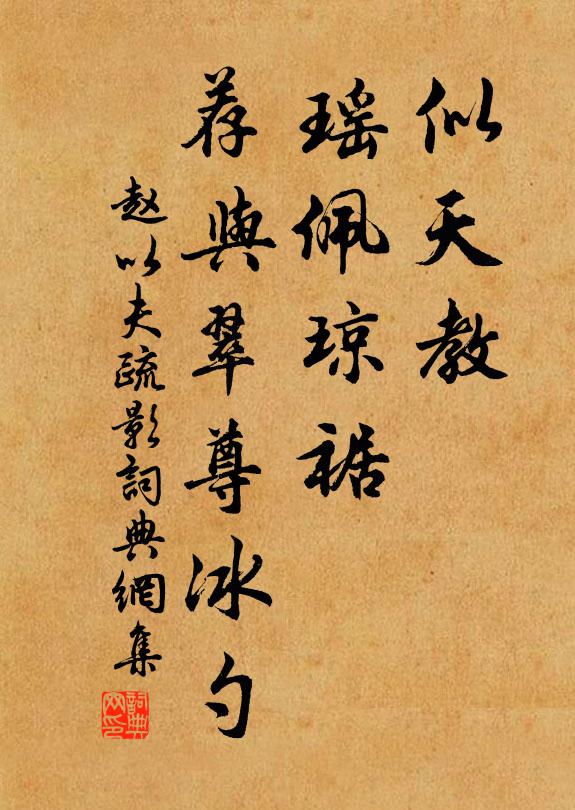 似天教
瑶佩琼裾
荐与翠尊冰勺
赵以夫疏影詞典網集
詞典网印